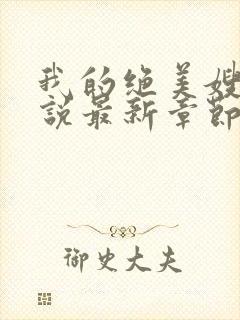 我的绝美嫂
说最新章节
御史大夫